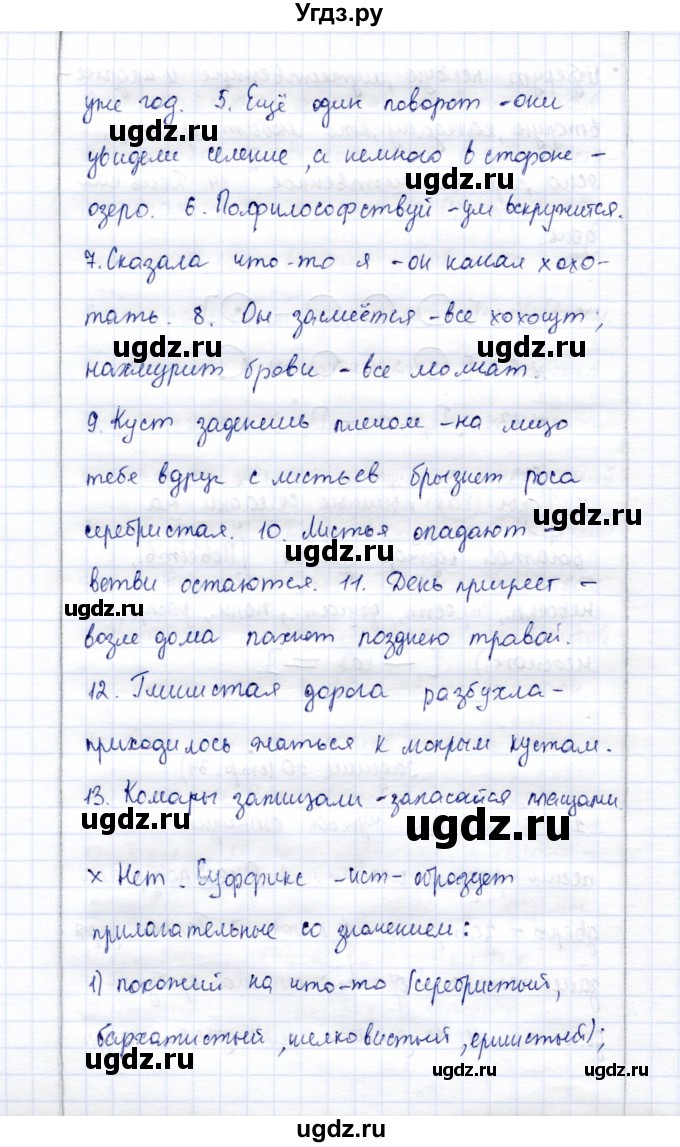 Угдз.ру
уже год. 5. Ещё один поворот - они
увидели селение, а немного в стороне -
озеро. 6. Пофилософствуй - ум вскружится.
7. Сказала что-то я - он начал хохо-
тать. 8. Он засмеётся - все хохочут;
нахмурит брови - все молчат.
9. Куст заденешь плечом - на лицо
тебе вдруг с листьев брызнет роса
серебристая. 10. Листья опадают -
ветви остаются. 11. День пригреет -
возле дома пахнет позднею травой.
12. Глинистая дорога разбухла -
приходилось жаться к мокрым кустам.
13. Комары запищали - запасайся плащами.
х Нет. Суффикс -ист- образует
прилагательные со значением:
1) похожий на что-то (серебристый,
бархатистый, шелковистый, ершистый);
ugdz.ru
ugdz.ru
ugdz.ru
ugdz.ru
ugdz.ru
ugdz.ru
ugdz.ru
ugdz.ru
ugdz.ru
ugdz.ru
ugdz.ru
ugdz.ru
ugdz.ru
ugdz.ru